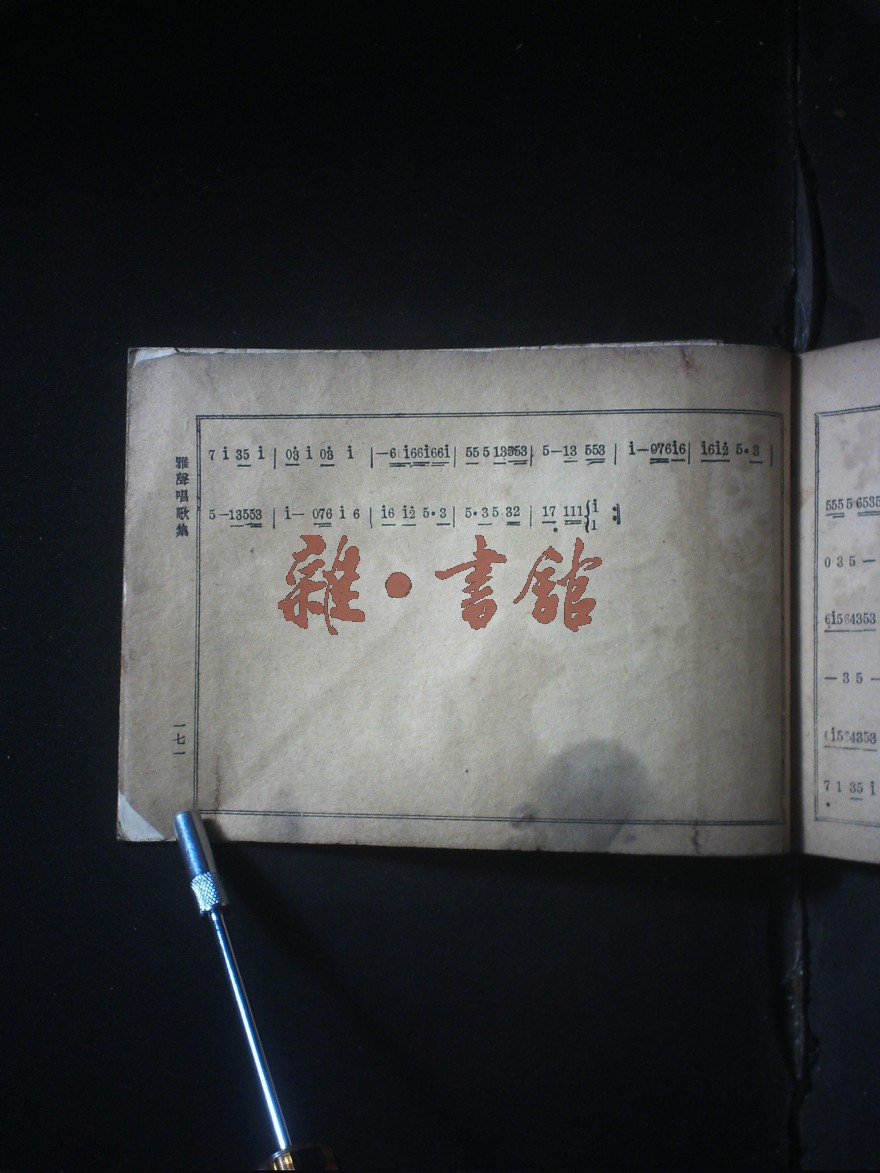 雅聲唱歌集
7 i 35 i | 03 i 03 i | —6 i66i66i | 55 5 13553 | 5—13 553 | i—076i6 | i6i2 5·3 |
5—13553 | i— 076 i 6 | i6 i2 5·3 | 5·3 5 32 | 17 111{i 1 :||
雜·書館
一七一
555 5 6535
0 3 5 —
— 3 5 —
7 1 35 i